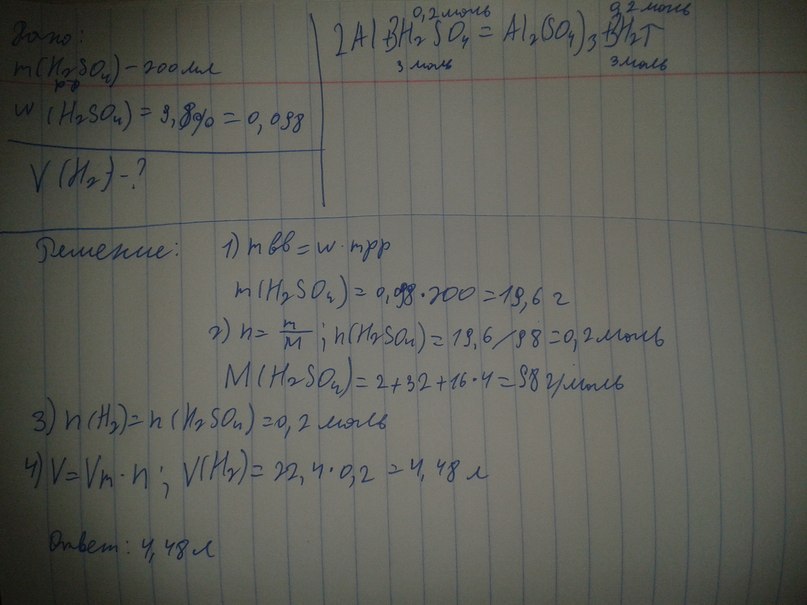 Дано:
m(H₂SO₄) - 200 мл
р-р
w (H₂SO₄) = 9,8% = 0,098
V (H₂) - ?
0,2 моль 0,2 моль
2Al 3H₂SO₄ = Al₂(SO₄)₃ 3H₂↑
3 моль 3 моль
Решение: 1) m вв = w · mрр
m(H₂SO₄) = 0,098 · 200 = 19,6 г
2) n = m/M ; n(H₂SO₄) = 19,6/98 = 0,2 моль
M(H₂SO₄) = 2+32+16·4 = 98 г/моль
3) n(H₂) = n(H₂SO₄) = 0,2 моль
4) V = Vm · n ; V(H₂) = 22,4 · 0,2 = 4,48 л
Ответ: 4,48 л